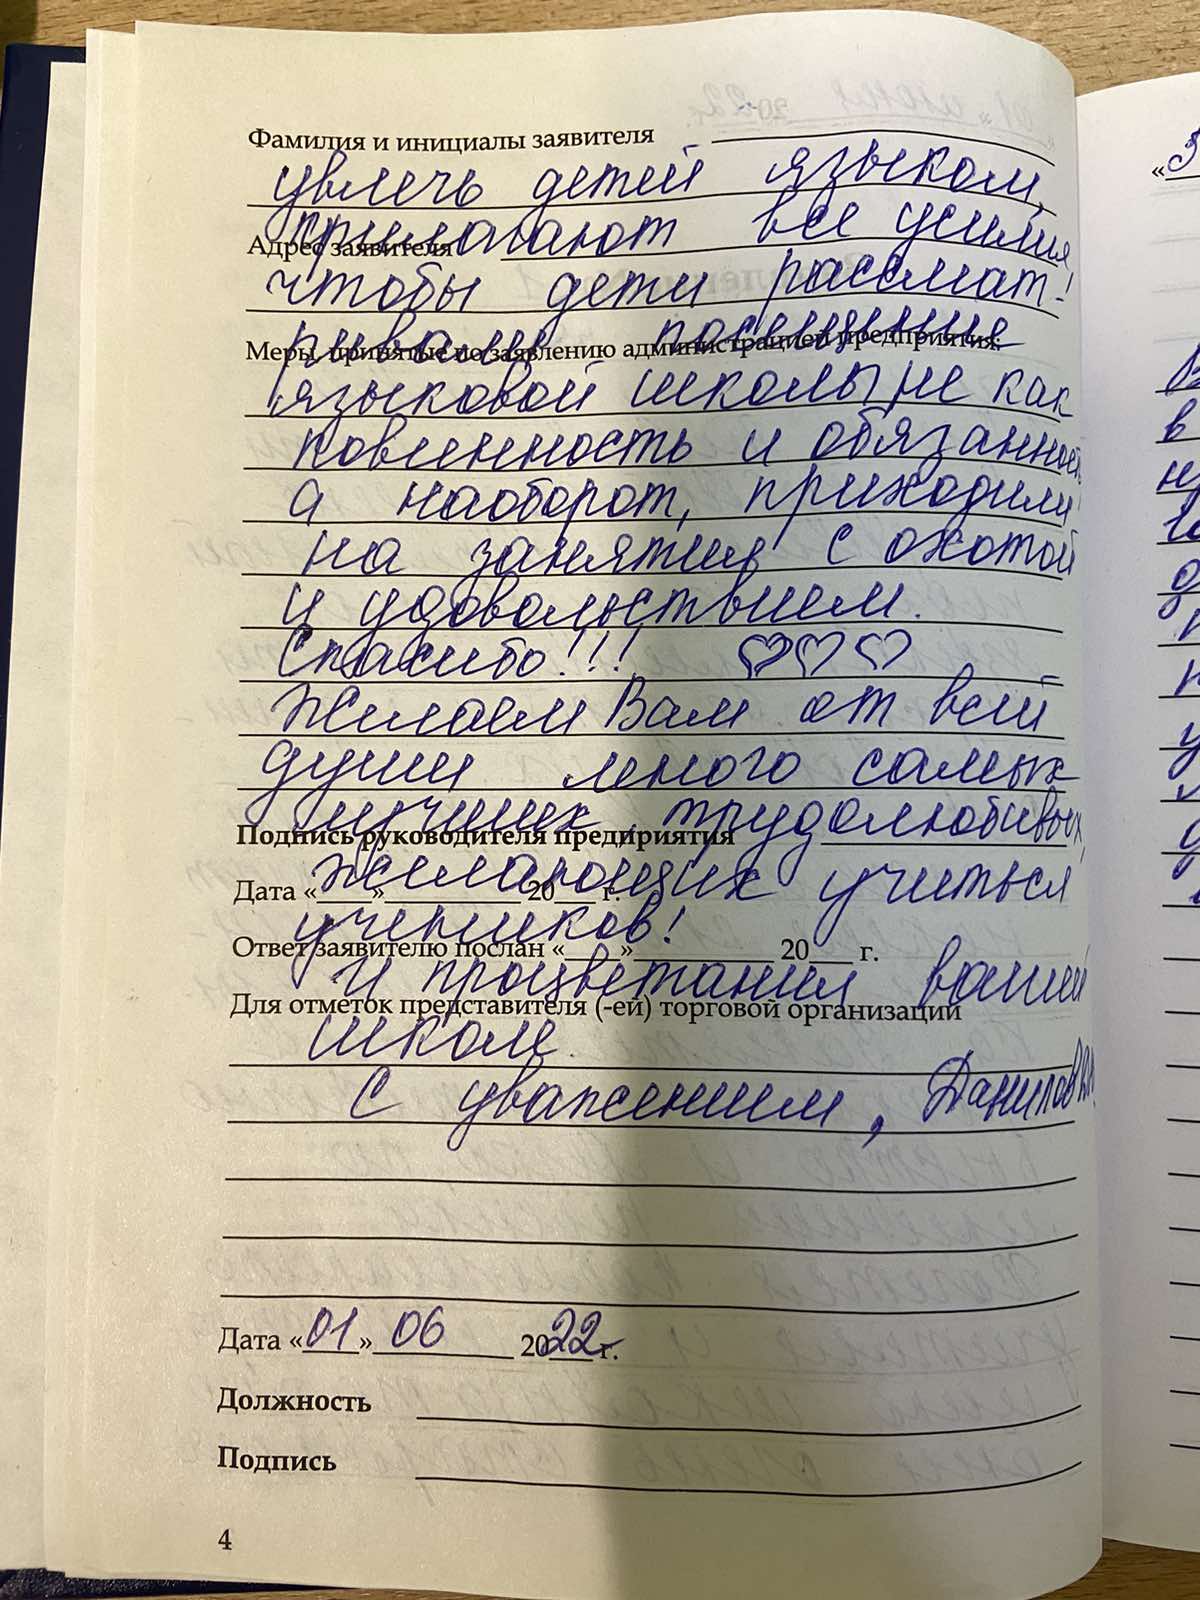 Фамилия и инициалы заявителя
увлечь детей языком,
прилагают все усилия,
Адрес заявителя
чтобы дети рассмат-
ривали посещение
Меры, принятые по заявлению администрацией предприятия:
языковой школы не как
повинность и обязанность,
а наоборот, приходили
на занятия с охотой
и удовольствием.
Спасибо!!!
Желаем Вам от всей
души много самых
лучших, трудолюбивых,
Подпись руководителя предприятия
желающих учиться
Дата «___»__________20___ г.
учеников!
Ответ заявителю послан «____»__________ 20___ г.
и процветания вашей
Для отметок представителя (-ей) торговой организации
школе
С уважением, Данилова
Дата «01» 06 2022 г.
Должность
Подпись
4
«3
в